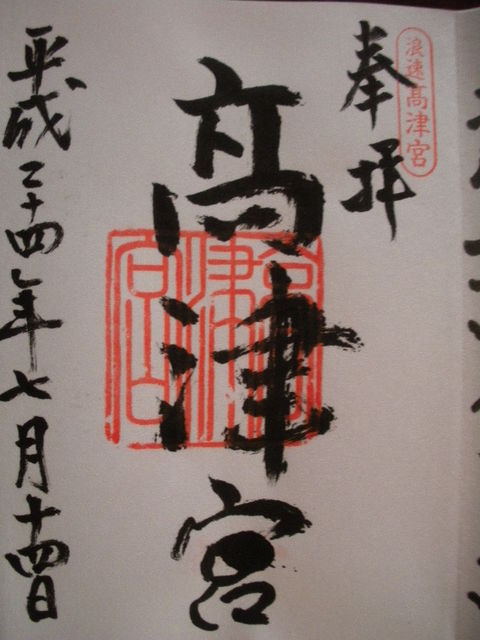 浪速高津宮
奉拝
高津宮
高津宮
平成二十四年七月十四日